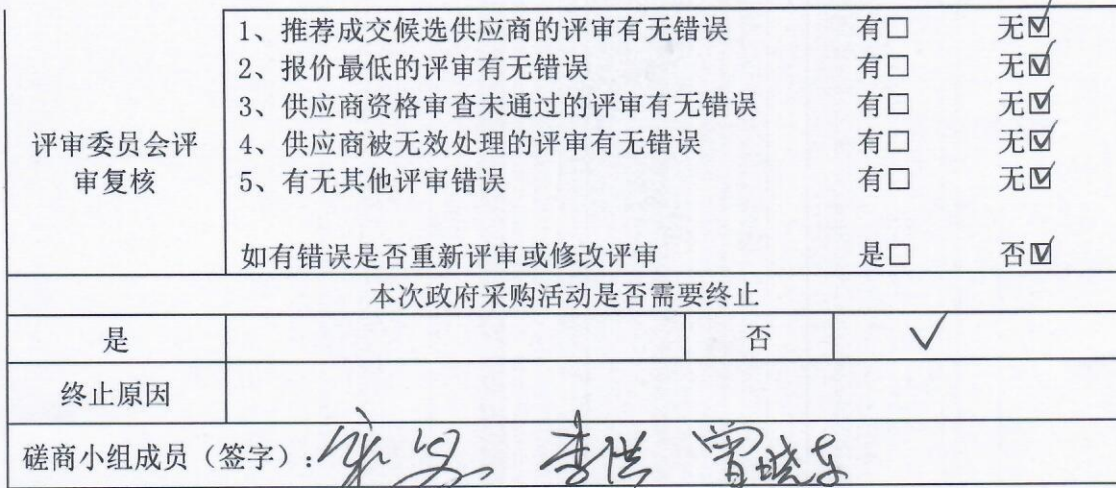 1、推荐成交候选供应商的评审有无错误 有□ 无☑
2、报价最低的评审有无错误 有□ 无☑
3、供应商资格审查未通过的评审有无错误 有□ 无☑
评审委员会评
审复核
4、供应商被无效处理的评审有无错误 有□ 无☑
5、有无其他评审错误 有□ 无☑
如有错误是否重新评审或修改评审 是□ 否☑
本次政府采购活动是否需要终止
是 否 ✓
终止原因
磋商小组成员（签字）: 李洪 曾晓东